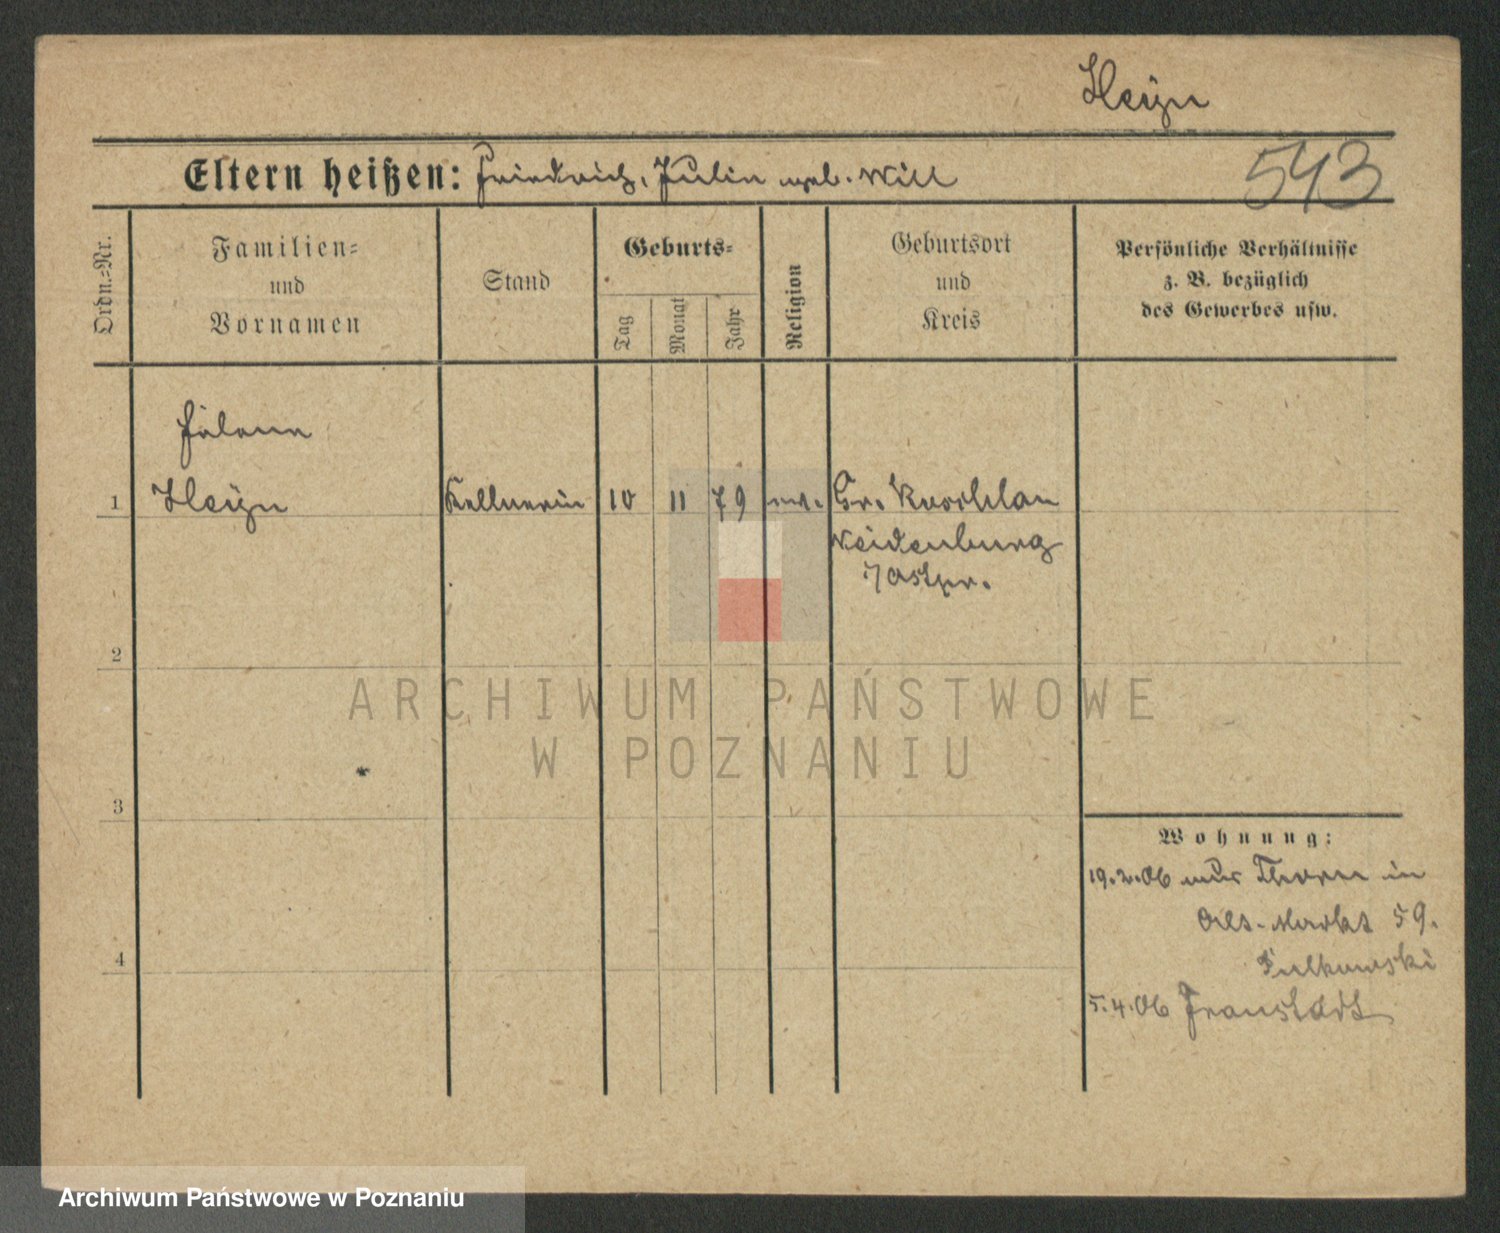 Heyn
Eltern heißen: Friedrich, Julie geb. Will
543
Ordn.-Nr.
Familien-
und
Vornamen
Stand
Geburts-
Tag
Monat
Jahr
Religion
Geburtsort
und
Kreis
Persönliche Verhältnisse
z. B. bezüglich
des Gewerbes usw.
Helene
1 Heyn Kellnerin 10 11 79 ev. Gr. Koschlau
Neidenburg
/Ostpr.
2
ARCHIWUM PAŃSTWOWE
W POZNANIU
3
Wohnung:
19.2.06 aus Thorn in
Alt-Markt 59.
4
5.4.06 Fraustadt
Archiwum Państwowe w Poznaniu